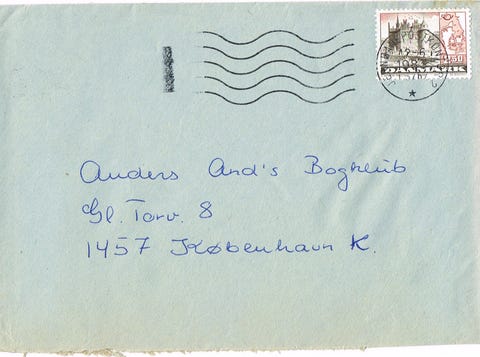 2.50
DANMARK
Anders And's Bogklub
Gl. Torv. 8
1457 København K.